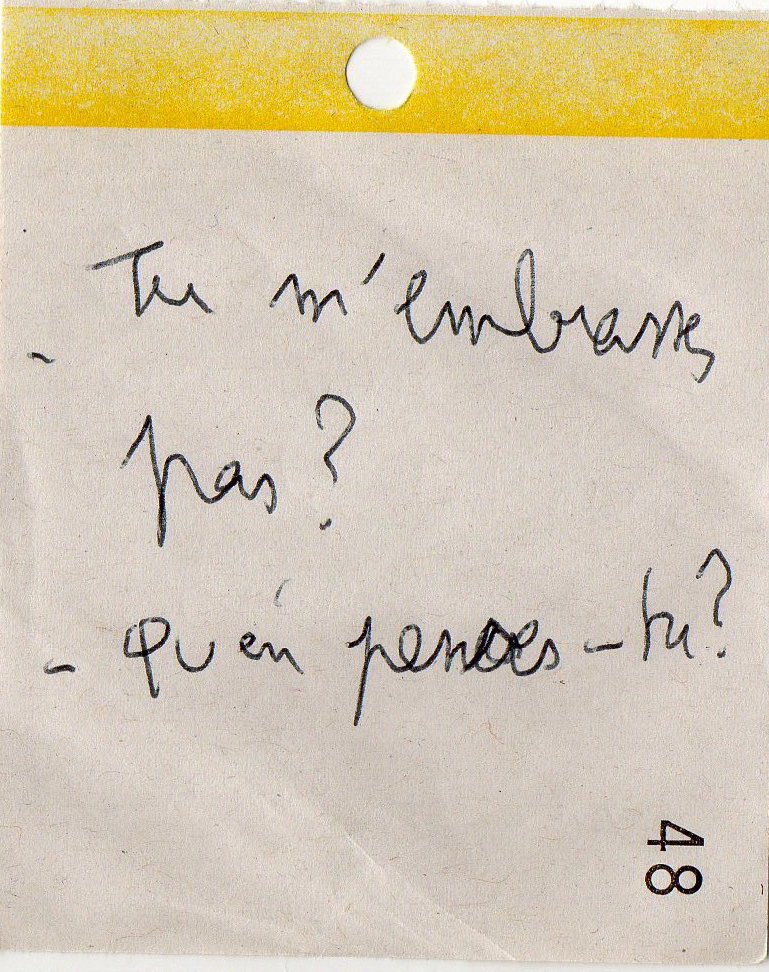 - Tu m'embrasses
pas?
- Qu'en penses-tu?
48